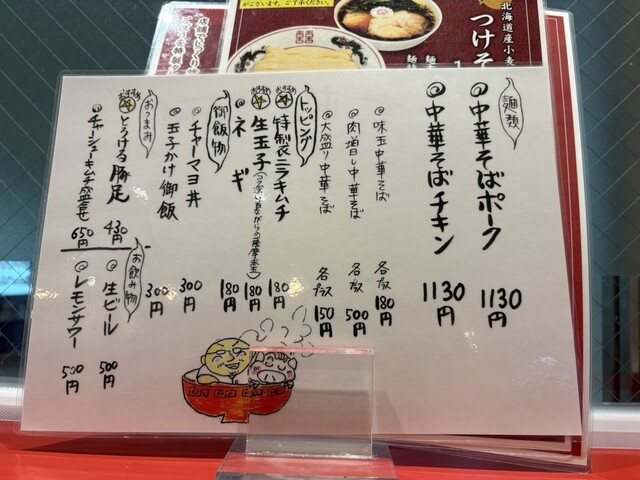 北海道産小麦
つけそ
麺類
◎中華そばポーク 1130円
◎中華そばチキン 1130円
◎味玉中華そば 各プラス180円
◎肉増し中華そば 各プラス500円
◎大盛り中華そば 各プラス150円
トッピング
おすすめ 特製ニラキムチ 180円
おすすめ 生玉子 180円
◎ネギ 180円
御飯物
◎チャーマヨ丼 300円
◎玉子かけ御飯 300円
おつまみ
おすすめ とろける豚足 430円
◎チャーシューキムチ盛合せ 650円
お飲み物
◎生ビール 500円
◎レモンサワー 500円